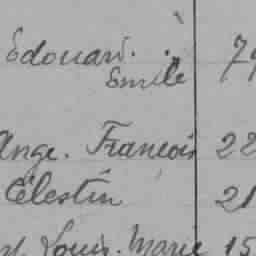 Edouard.
Emile
Ange. Francois 22
Célestin 21
Louis. Marie 15